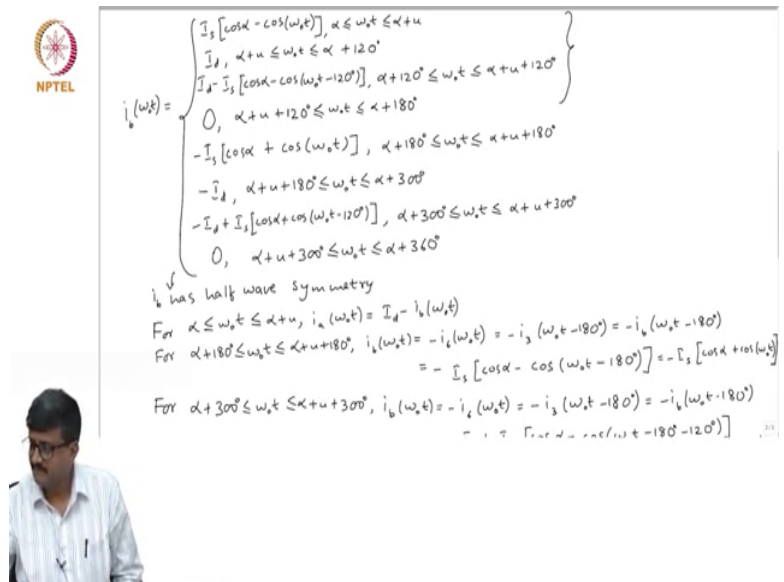 NPTEL
i_b(ω₀t) =
I_s[cosα - cos(ω₀t)], α ≤ ω₀t ≤ α+u
I_d, α+u ≤ ω₀t ≤ α+120°
I_d - I_s[cosα - cos(ω₀t-120°)], α+120° ≤ ω₀t ≤ α+u+120°
0, α+u+120° ≤ ω₀t ≤ α+180°
-I_s[cosα + cos(ω₀t)], α+180° ≤ ω₀t ≤ α+u+180°
-I_d, α+u+180° ≤ ω₀t ≤ α+300°
-I_d + I_s[cosα + cos(ω₀t-120°)], α+300° ≤ ω₀t ≤ α+u+300°
0, α+u+300° ≤ ω₀t ≤ α+360°
i_b has half wave symmetry
For α ≤ ω₀t ≤ α+u, i_a(ω₀t) = I_d - i_b(ω₀t)
For α+180° ≤ ω₀t ≤ α+u+180°, i_b(ω₀t) = -i_6(ω₀t) = -i_3(ω₀t-180°) = -i_b(ω₀t-180°)
= - I_s[cosα - cos(ω₀t-180°)] = -I_s[cosα + cos(ω₀t)]
For α+300° ≤ ω₀t ≤ α+u+300°, i_b(ω₀t) = -i_6(ω₀t) = -i_3(ω₀t-180°) = -i_b(ω₀t-180°)
-180°-120°)]